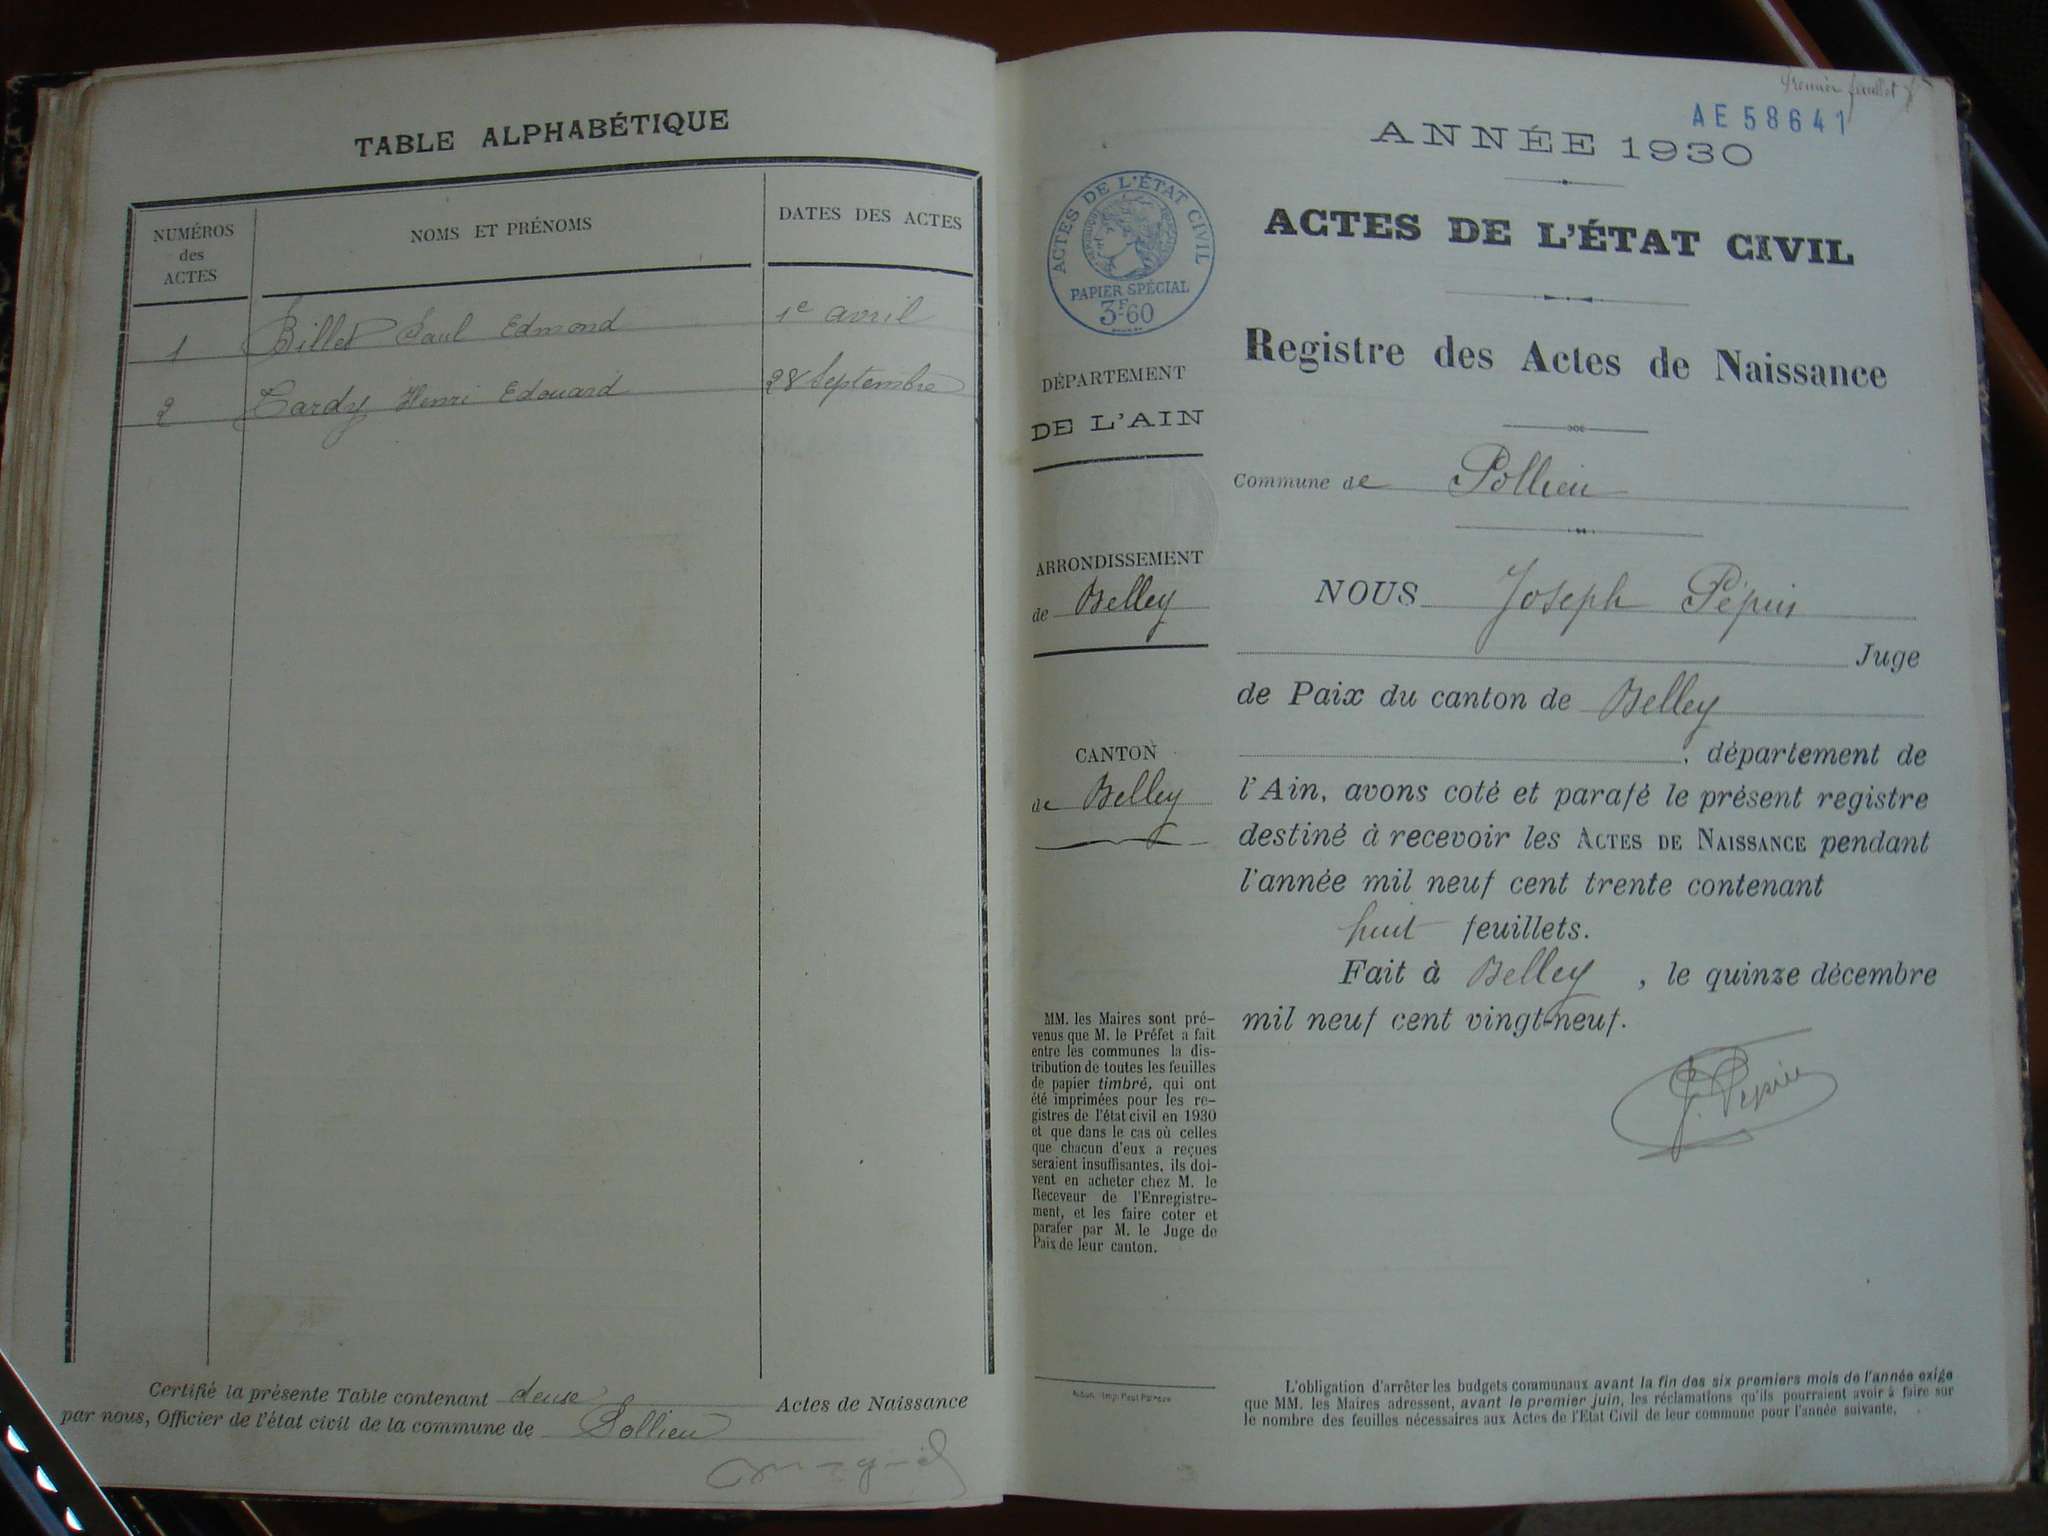 TABLE ALPHABÉTIQUE
NUMÉROS
des
ACTES
NOMS ET PRÉNOMS
DATES DES ACTES
1 Billet Paul Edmond 1e avril
2 Tardy Henri Edouard 28 Septembre
Certifié la présente Table contenant deux Actes de Naissance
par nous, Officier de l'état civil de la commune de Pollieu
Premier feuillet
AE 58641
ANNÉE 1930
ACTES DE L'ÉTAT CIVIL
PAPIER SPÉCIAL
3F60
DÉPARTEMENT
DE L'AIN
ARRONDISSEMENT
de Belley
CANTON
de Belley
MM. les Maires sont pré-
venus que M. le Préfet a fait
entre les communes la dis-
tribution de toutes les feuilles
de papier timbré, qui ont
été imprimées pour les re-
gistres de l'état civil en 1930
et que dans le cas où celles
que chacun d'eux a reçues
seraient insuffisantes, ils doi-
vent en acheter chez M. le
Receveur de l'Enregistre-
ment, et les faire coter et
parafer par M. le Juge de
Paix de leur canton.
ACTES DE L'ÉTAT CIVIL
Registre des Actes de Naissance
Commune de Pollieu
NOUS Joseph Pépin
Juge
de Paix du canton de Belley
, département de
l'Ain, avons coté et parafé le présent registre
destiné à recevoir les ACTES DE NAISSANCE pendant
l'année mil neuf cent trente contenant
huit feuillets.
Fait à Belley, le quinze décembre
mil neuf cent vingt-neuf.
J. Pepin
L'obligation d'arrêter les budgets communaux avant la fin des six premiers mois de l'année exige
que MM. les Maires adressent, avant le premier juin, les réclamations qu'ils pourraient avoir à faire sur
le nombre des feuilles nécessaires aux Actes de l'État Civil de leur commune pour l'année suivante.